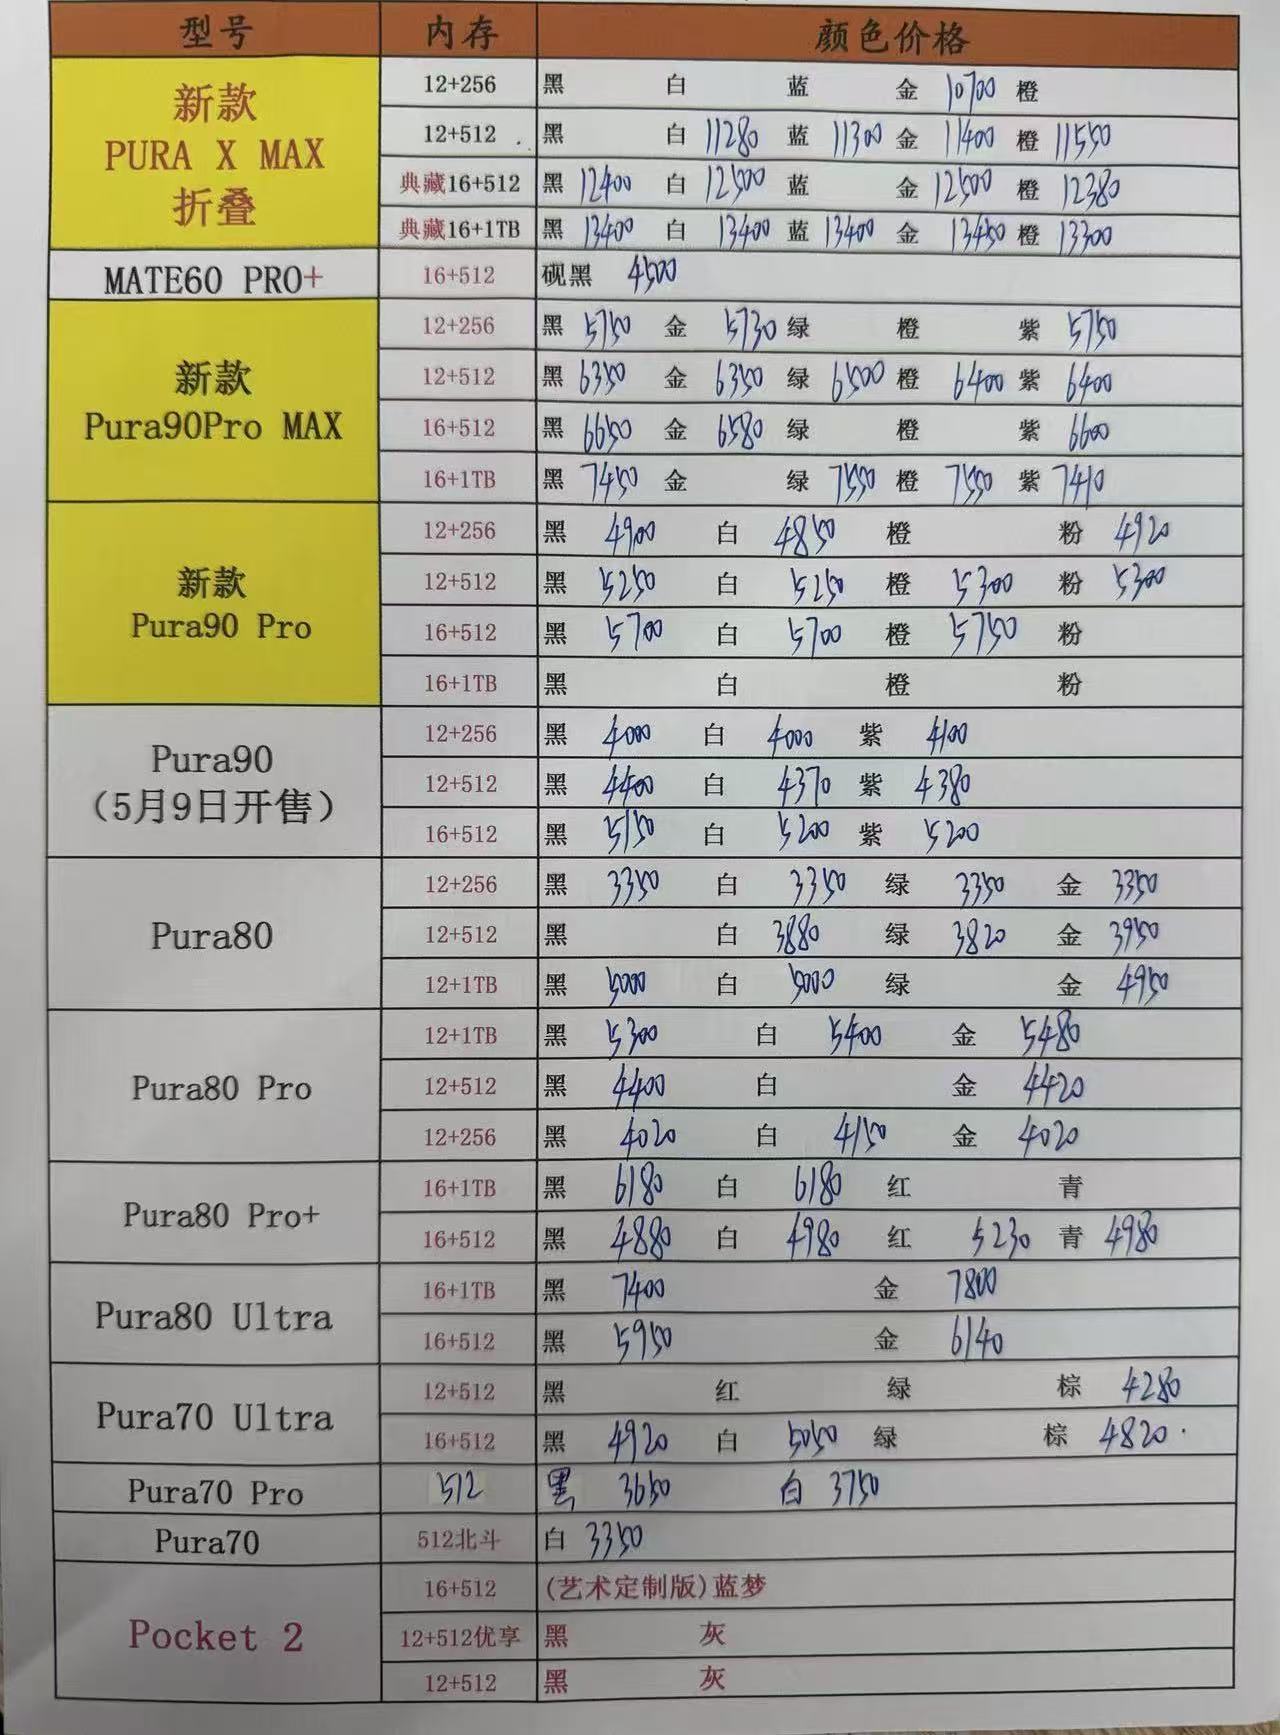 型号 内存 颜色价格
新款 PURA X MAX 折叠
12+256 黑 白 蓝 金 10700 橙
12+512 黑 白 11280 蓝 11300 金 11400 橙 11550
典藏16+512 黑 12400 白 12500 蓝 金 12500 橙 12380
典藏16+1TB 黑 13400 白 13400 蓝 13400 金 13450 橙 13300
MATE60 PRO+ 16+512 砚黑 4500
新款 Pura90Pro MAX
12+256 黑 5750 金 5730 绿 橙 紫 5750
12+512 黑 6350 金 6350 绿 6500 橙 6400 紫 6400
16+512 黑 6650 金 6580 绿 橙 紫 6600
16+1TB 黑 7450 金 绿 7550 橙 7550 紫 7410
新款 Pura90 Pro
12+256 黑 4900 白 4850 橙 粉 4920
12+512 黑 5250 白 5250 橙 5300 粉 5300
16+512 黑 5700 白 5700 橙 5750 粉
16+1TB 黑 白 橙 粉
Pura90 (5月9日开售)
12+256 黑 4000 白 4000 紫 4100
12+512 黑 4400 白 4370 紫 4380
16+512 黑 5150 白 5200 紫 5200
Pura80
12+256 黑 3350 白 3350 绿 3350 金 3350
12+512 黑 白 3880 绿 3820 金 3950
12+1TB 黑 5000 白 5000 绿 金 4950
Pura80 Pro
12+1TB 黑 5300 白 5400 金 5480
12+512 黑 4400 白 金 4420
12+256 黑 4020 白 4150 金 4020
Pura80 Pro+
16+1TB 黑 6180 白 6180 红 青
16+512 黑 4880 白 4980 红 5230 青 4980
Pura80 Ultra
16+1TB 黑 7400 金 7800
16+512 黑 5950 金 6140
Pura70 Ultra
12+512 黑 红 绿 棕 4280
16+512 黑 4920 白 5050 绿 棕 4820
Pura70 Pro 512 黑 3650 白 3750
Pura70 512北斗 白 3350
Pocket 2
16+512 (艺术定制版)蓝梦
12+512优享 黑 灰
12+512 黑 灰